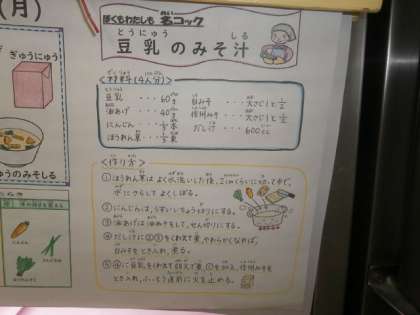 (月)
ぎゅうにゅう
ゅうのみそしる
にんじん
ぼくもわたしも 名コック
とうにゅう しる
豆乳のみそ汁
<材料(4人分)>
豆乳・・・60g 白みそ・・・大さじ1と1/2
油あげ・・・40g 信州みそ・・・大さじ1と1/2
にんじん・・・ 本 だし汁・・・600cc
ほうれん草・・・ 束
<作り方>
①ほうれん草はよく水洗いした後、2cmくらいに切ってゆで、
水にさらしてよくしぼる。
②にんじんは、うすいいちょう切りにする。
③油あげは油ぬきをして、せん切りにする。
④だし汁に②③をくわえて煮、やわらかくなれば、
白みそをとき入れ、煮る。
⑤④に豆乳をくわえて弱火で煮、①を加え、信州みそを
とき入れ、ふっとう直前に火を止める。